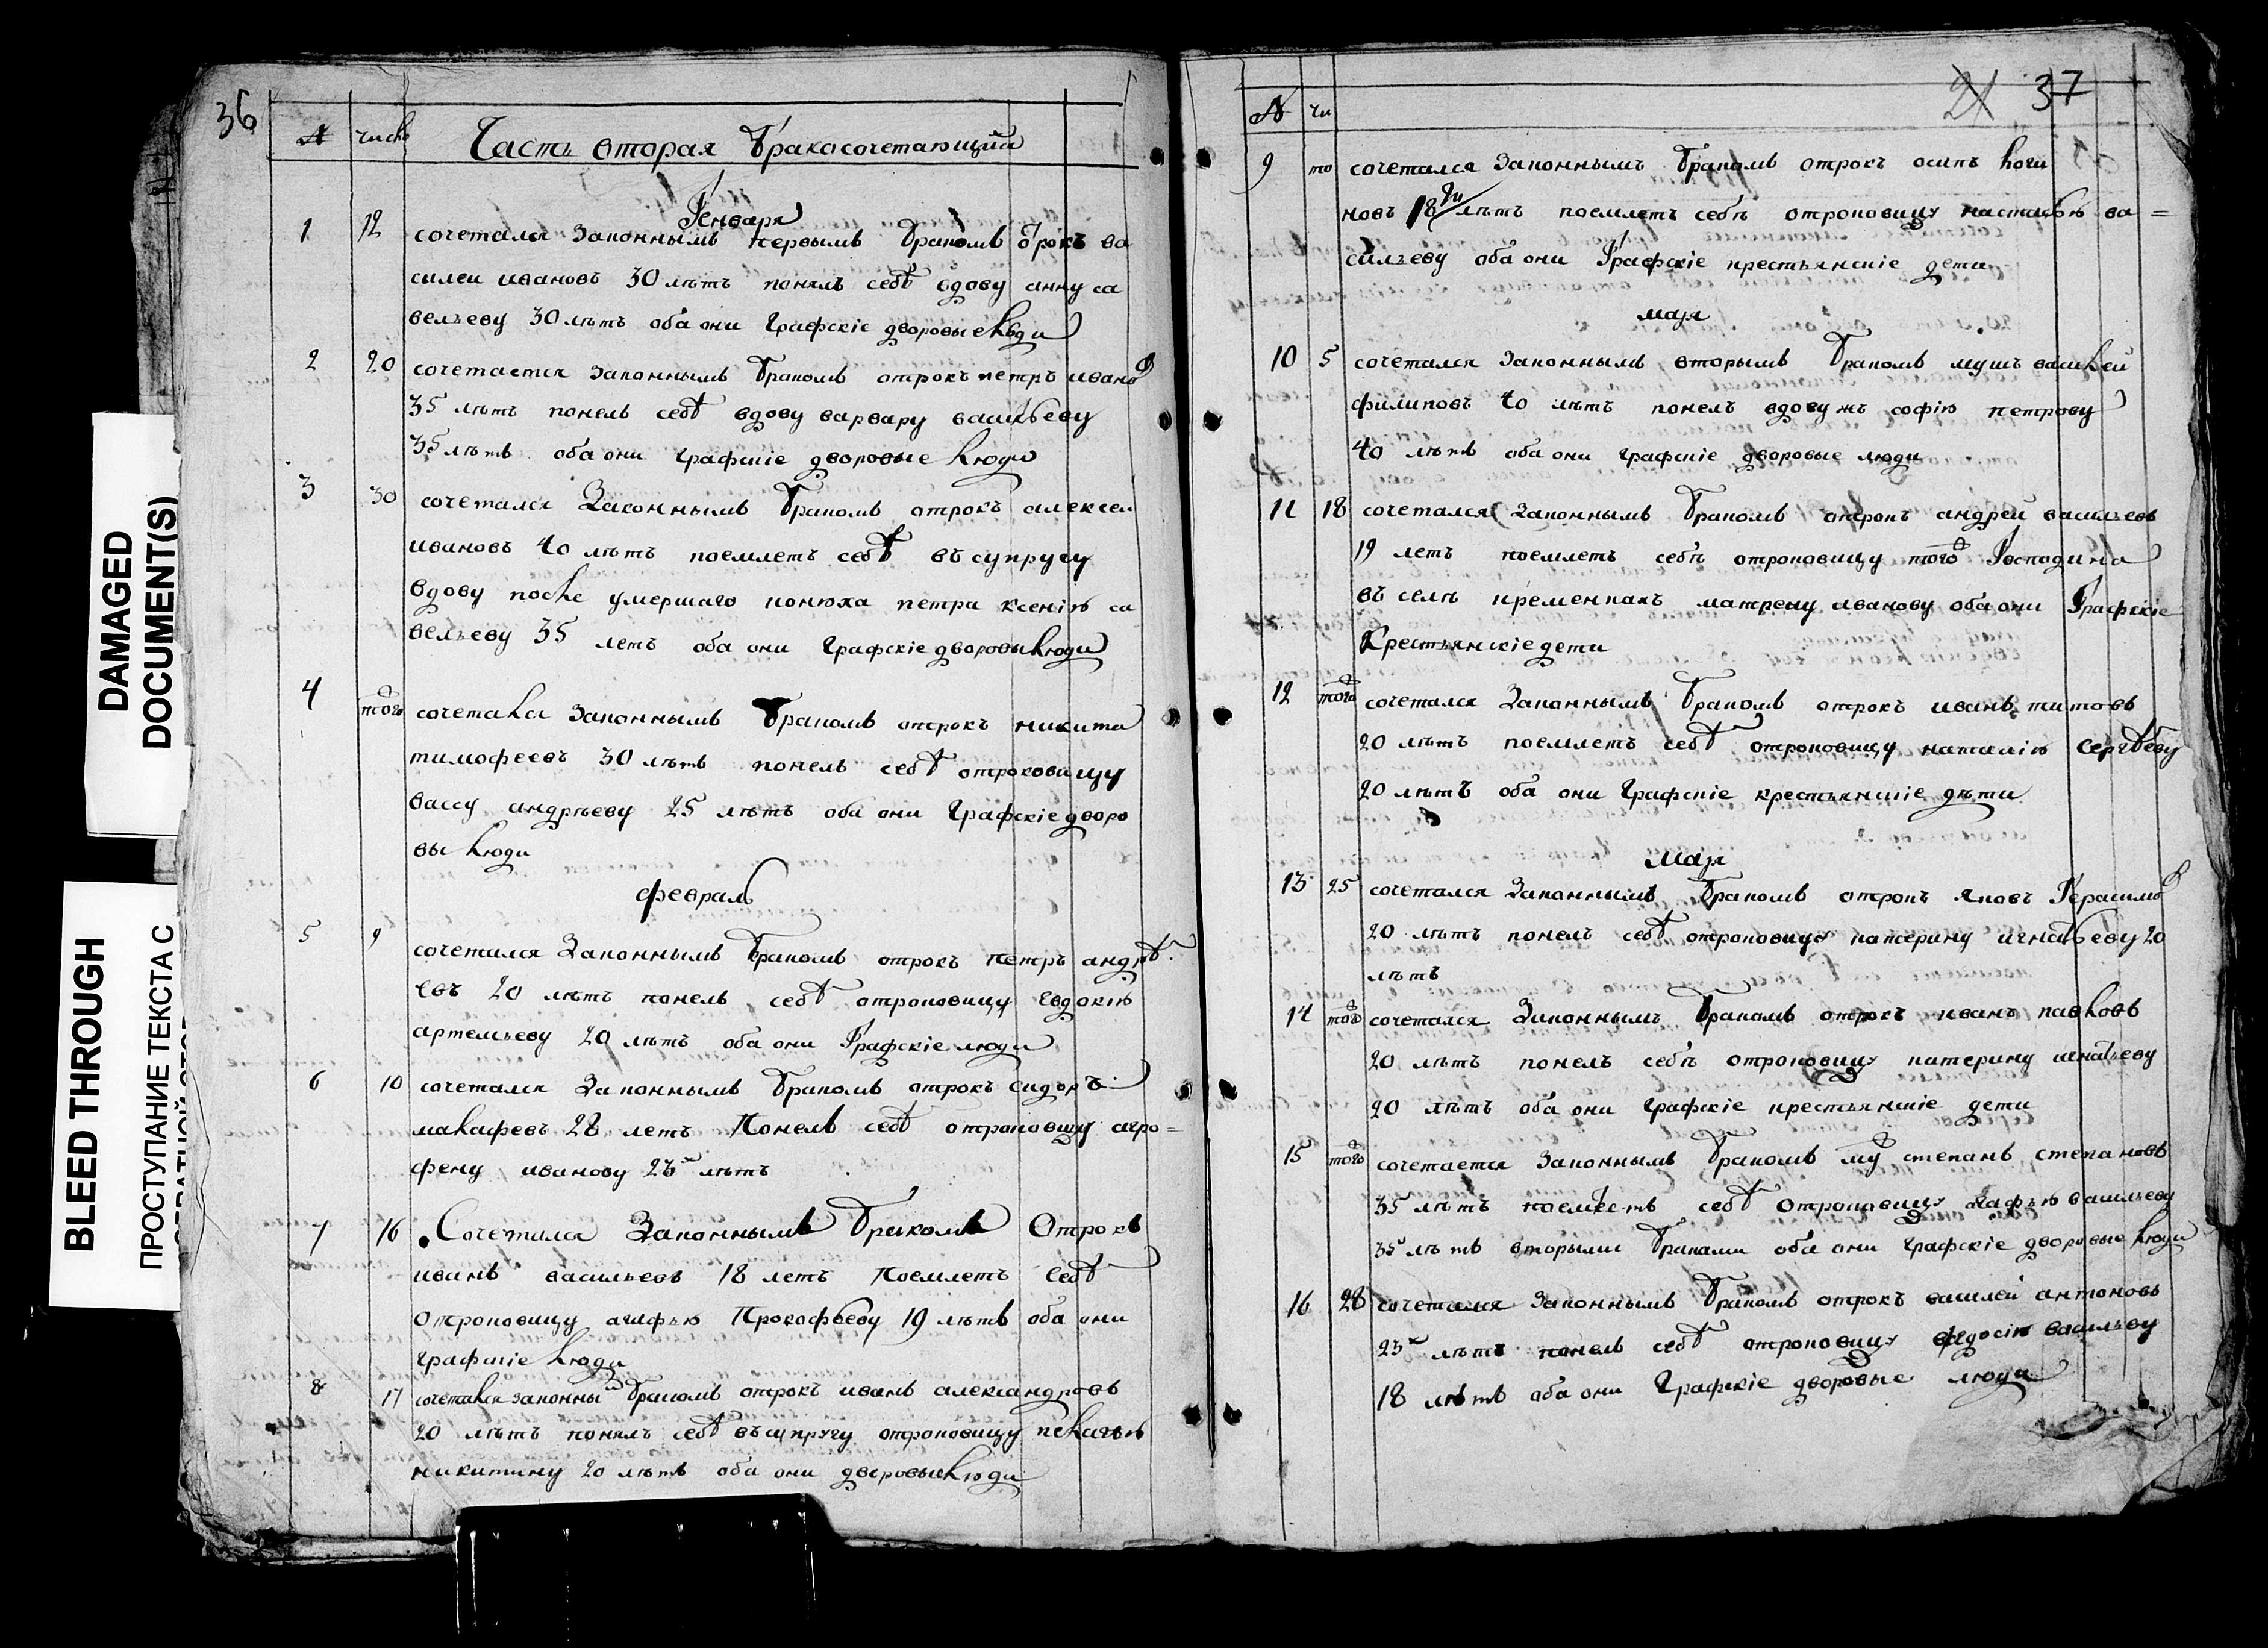 DAMAGED
DOCUMENT(S)
BLEED THROUGH
ПРОСТУПАНИЕ ТЕКСТА С
36
№ число Часть вторая бракосочетающий
Генваря
1 12 сочетался законнымъ первымъ бракомъ отрокъ ва
силеи ивановъ 30 лѣтъ понялъ себѣ вдову анну са
вельеву 30 лѣтъ оба они графскіе дворовые люди
2 20 сочетается законнымъ бракомъ отрокъ петръ ивановъ
35 лѣтъ понелъ себѣ вдову варвару васильеву
35 лѣтъ оба они графскіе дворовые люди
3 30 сочетался законнымъ бракомъ отрокъ алексеи
ивановъ 40 лѣтъ поемлетъ себѣ въ супругу
вдову после умершаго конюха петра ксенію са
вельеву 35 летъ оба они графскіе дворовы люди
4 того сочетался законнымъ бракомъ отрокъ никита
тимофеевъ 30 лѣтъ понелъ себѣ отроковицу
вассу андрѣеву 25 лѣтъ оба они графскіе дворо
вы люди
февраль
5 9 сочетался законнымъ бракомъ отрокъ петръ андрѣ
евъ 20 лѣтъ понелъ себѣ отроковицу евдокию
артемьеву 20 лѣтъ оба они графскіе люди
6 10 сочетался законнымъ бракомъ отрокъ сидоръ
малафевъ 28 летъ понелъ себѣ отроковицу агро=
фену иванову 23 лѣтъ
7 16 Сочетался законнымъ бракомъ отрокъ
иванъ васильевъ 18 летъ поемлетъ себѣ
отроковицу агафью прокофьеву 19 лѣтъ оба они
графскіе люди
8 17 сочетался законны бракомъ отрокъ иванъ александровъ
20 лѣтъ понялъ себѣ въ супругу отроковицу пелагью
никитину 20 лѣтъ оба они дворовые люди
21 37
№ чи
9 то сочетался законнымъ бракомъ отрокъ осипъ логи
новъ 18 лѣтъ поемлетъ себѣ отроковицу настасью ва=
сильеву оба они графскіе крестьянскіе дети
мая
10 5 сочетался законнымъ вторымъ бракомъ мушъ василей
филиповъ 40 лѣтъ понелъ вдову жъ софію петрову
40 лѣтъ оба они графскіе дворовые люди
11 18 сочетался законнымъ бракомъ отрокъ андрей васильевъ
19 летъ поемлетъ себѣ отроковицу того господина
въ селѣ кременкахъ матрену иванову оба они графскіе
крестьянскіе дети
12 того сочетался законнымъ бракомъ отрокъ иванъ титовъ
20 лѣтъ поемлетъ себѣ отроковицу наталію сергѣеву
20 лѣтъ оба они графскіе крестьянскіе дѣти
мая
13 25 сочетался законнымъ бракомъ отрокъ яковъ герасимовъ
20 лѣтъ понелъ себѣ отроковицу катерину игнатьеву 20
лѣтъ
14 того сочетался законнымъ бракомъ отрокъ иванъ павловъ
20 лѣтъ понелъ себѣ отроковицу катерину игнатьеву
20 лѣтъ оба они графскіе крестьянскіе дети
15 того сочетается законнымъ бракомъ му степанъ степановъ
35 лѣтъ поемлетъ себѣ отроковицу васильеву
35 лѣтъ вторыми браками оба они графскіе дворовые люди
16 28 сочетался законнымъ бракомъ отрокъ василей антоновъ
23 лѣтъ понелъ себѣ отроковицу федосію васильеву
18 лѣтъ оба они графскіе дворовые люди